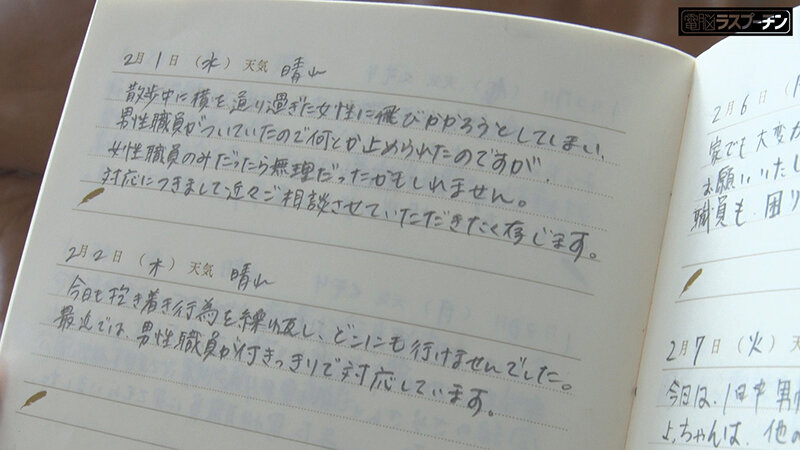 電脳ラスプーチン
2月1日(水)天気 晴れ
散歩中に横を通り過ぎた女性に飛びかかろうとしてしまい、
男性職員がついていたので何とか止められたのですが、
女性職員のみだったら無理だったかもしれません。
対応につきまして近々ご相談させていただきたく存じます。
2月2日(木)天気 晴れ
今日も抱き着き行為を繰り返し、どこにも行けませんでした。
最近では、男性職員が付きっきりで対応しています。
2月6日
家でも大変
お願いいたし
職員も、困り
2月7日(火)天
今日は、1日中男性
ちゃんは、他の